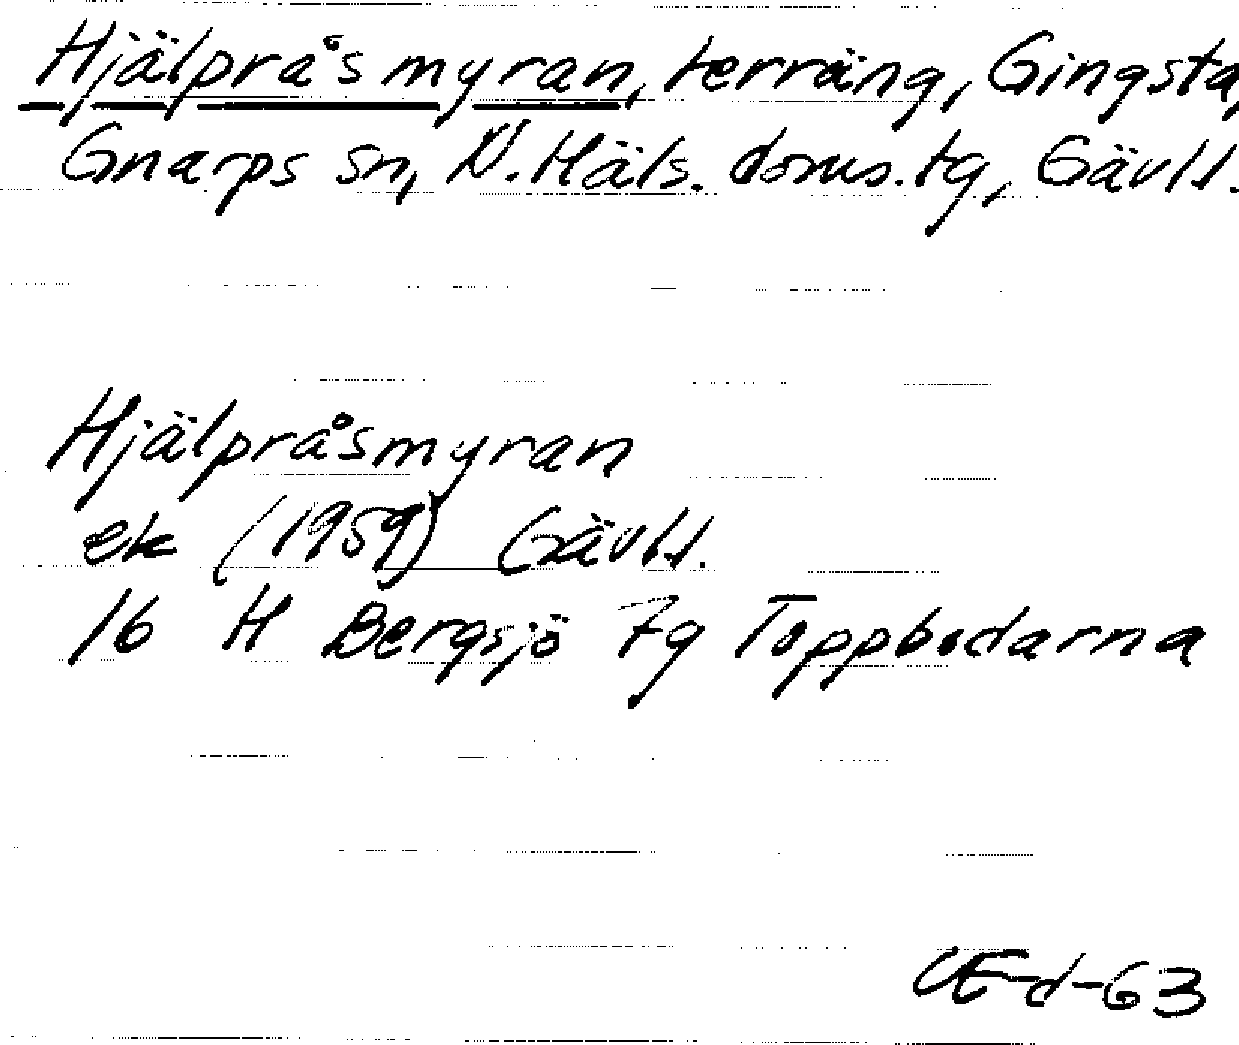 Hjälpråsmyran, terräng, Gingsta,
Gnarps sn, N. Häls. doms. tg, Gävl l.
Hjälpråsmyran
ek (1959) Gävl l.
16 H Bergsjö 7g Toppbodarna
CE-d-63